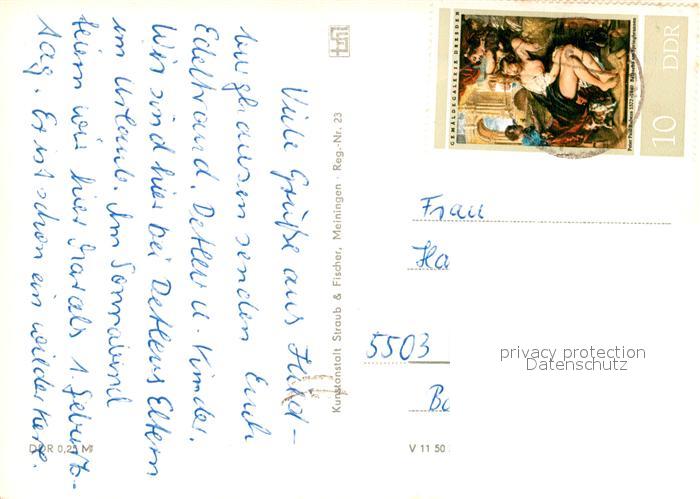 Viele Grüße aus Hild-
burghausen senden Euch
Edeltraud, Detlev u. Kinder.
Wir sind hier bei Detlevs Eltern
im Urlaub. Am Sonnabend
feiern wir hier 1. Geburts-
tag. Er ist schon ein wilder Kerl.
DDR 0,25 M
Kunstanstalt Straub & Fischer, Meiningen · Reg.-Nr. 23
GEMÄLDEGALERIE DRESDEN
Peter Paul Rubens 1577-1640 Bathseba am Springbrunnen
10 DDR
Frau
Ha
5503
Ba
V 11 50
privacy protection
Datenschutz